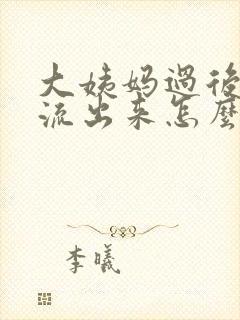 大姨妈過後
流出来怎麼
李曦